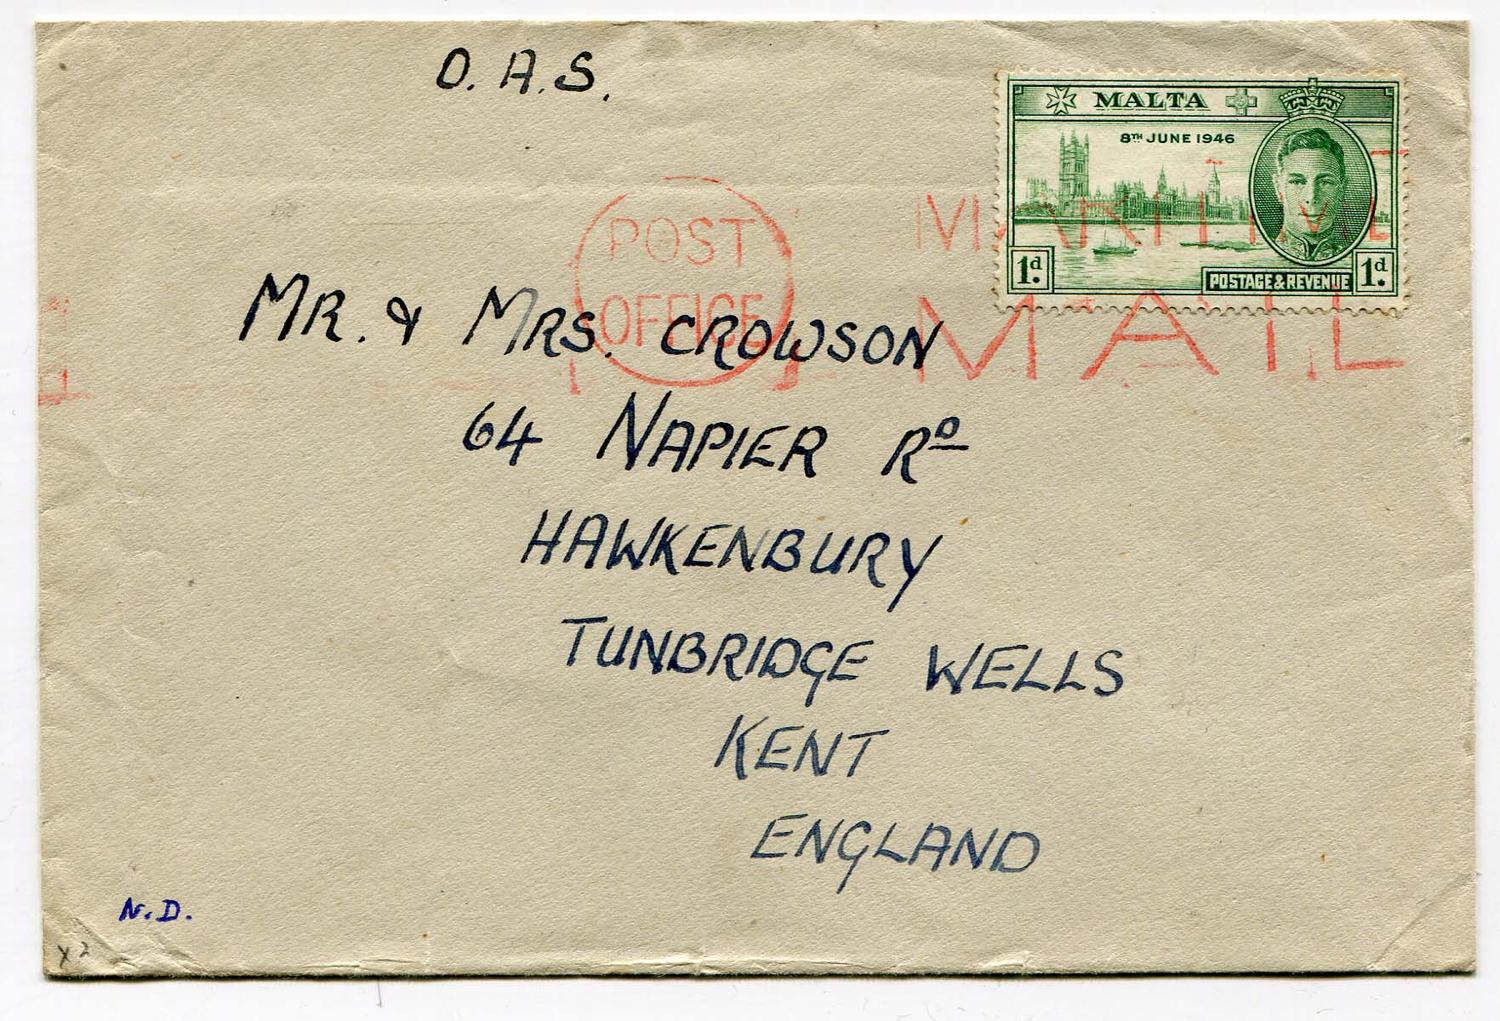 O.A.S.
MALTA
8TH JUNE 1946
1d.
POSTAGE & REVENUE
1d.
POST
OFFICE
MARITIME
MAIL
MR. & MRS. CROWSON
64 NAPIER RD
HAWKENBURY
TUNBRIDGE WELLS
KENT
ENGLAND
N.D.
x2